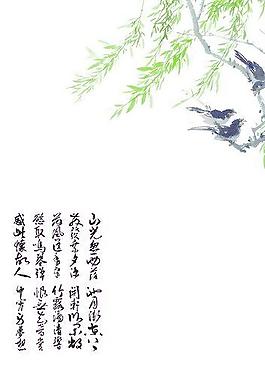 山光忽西落 池月漸東上
散髮乘夕涼 開軒臥閑敞
荷風送香氣 竹露滴清響
欲取鳴琴彈 恨無知音賞
感此懷故人 中宵勞夢想